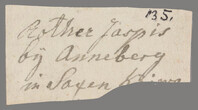 135.
Rother Jaspis
by Anneberg
in Saxen